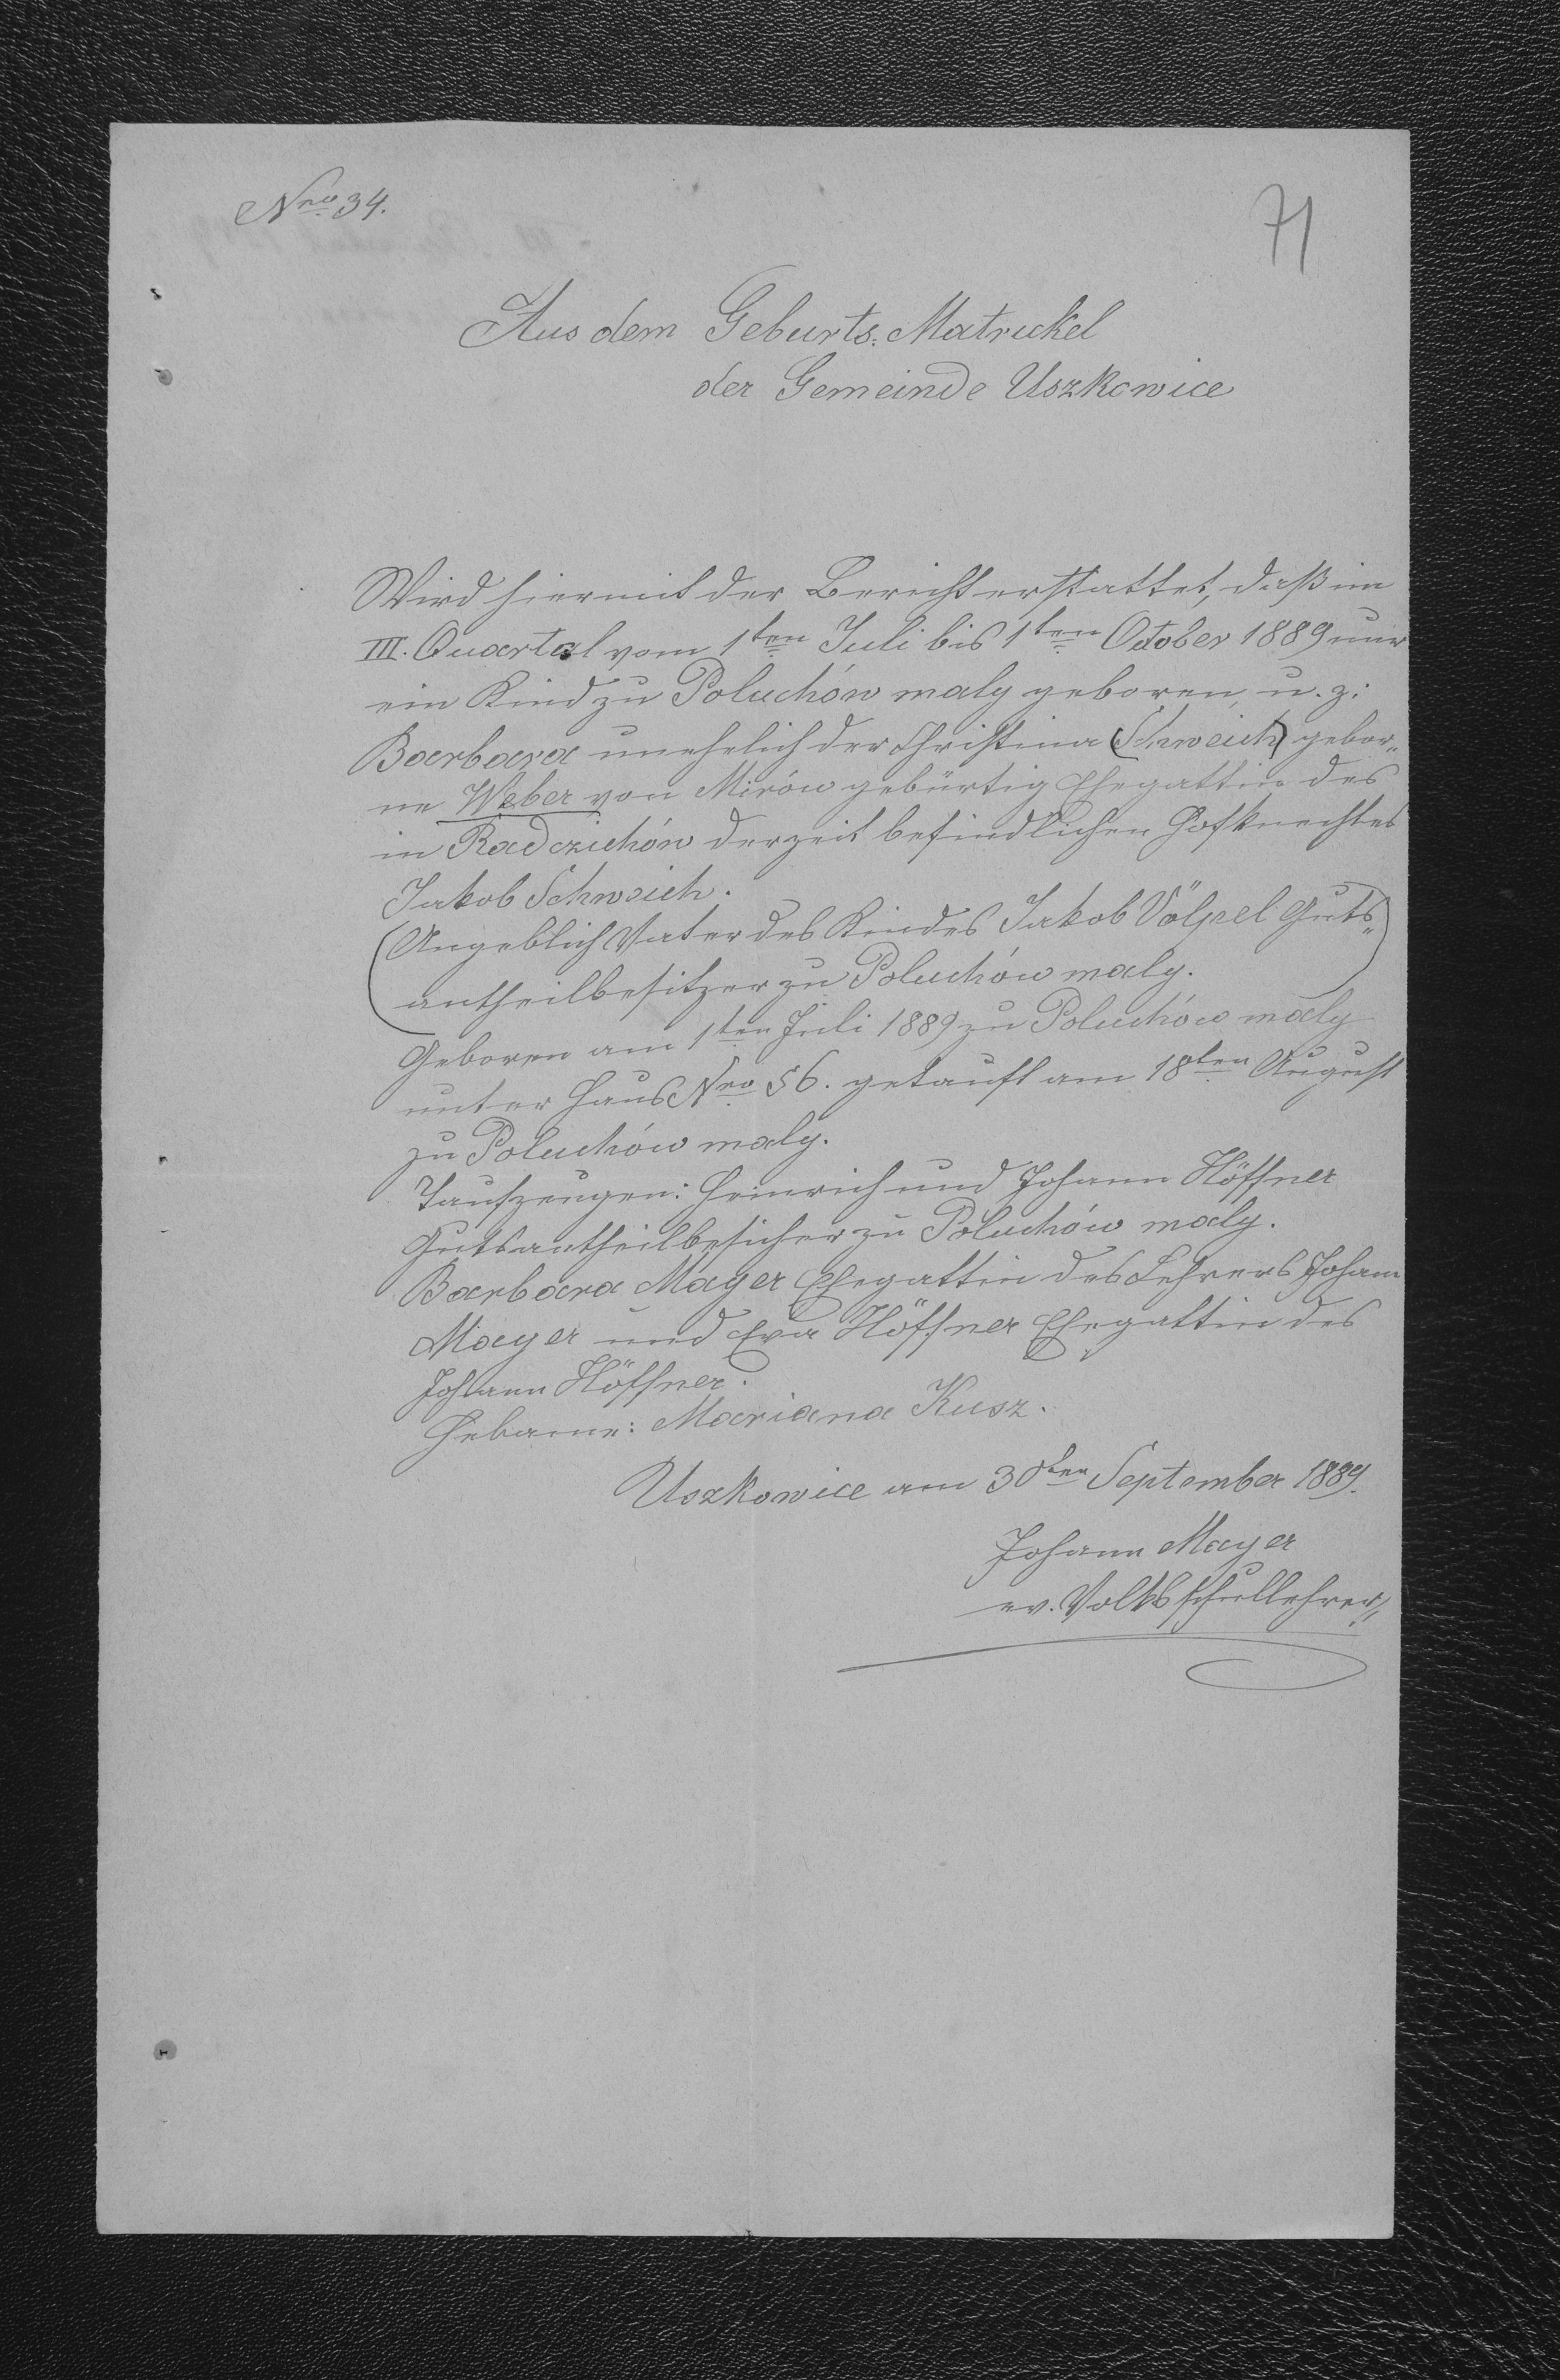 Nro 34.
71
Aus dem Geburts-Matrickel
der Gemeinde Uszkowice
Wird hiermit der Bericht erstattet, daß im
III. Quartal vom 1ten Juli bis 1ten October 1889 nur
ein Kind zu Poluchów maly geboren, u. z:
Barbara unehelich der Christina (Schweich) gebor„
ne Weber von Mirów gebürtig Ehegattin des
in Radczichów derzeit befindlichen Hofknechtes
Jakob Schweich.
(Angeblich Vater des Kindes Jakob Völpel Guts„
antheilbesitzer zu Poluchów maly.)
Geboren am 1ten Juli 1889 zu Poluchów maly
unter Haus Nro 56. getauft am 18ten August
zu Poluchów maly.
Taufzeugen: Heinrich und Johann Höffner
Gutsantheilbesicher zu Poluchów maly.
Barbara Mayer Ehegattin des Lehrers Johann
Mayer und Eva Höffner Ehegattin des
Johann Höffner.
Hebame: Mariana Kusz.
Uszkowice am 30ten September 1889.
Johann Mayer
ev. Volksschullehrer